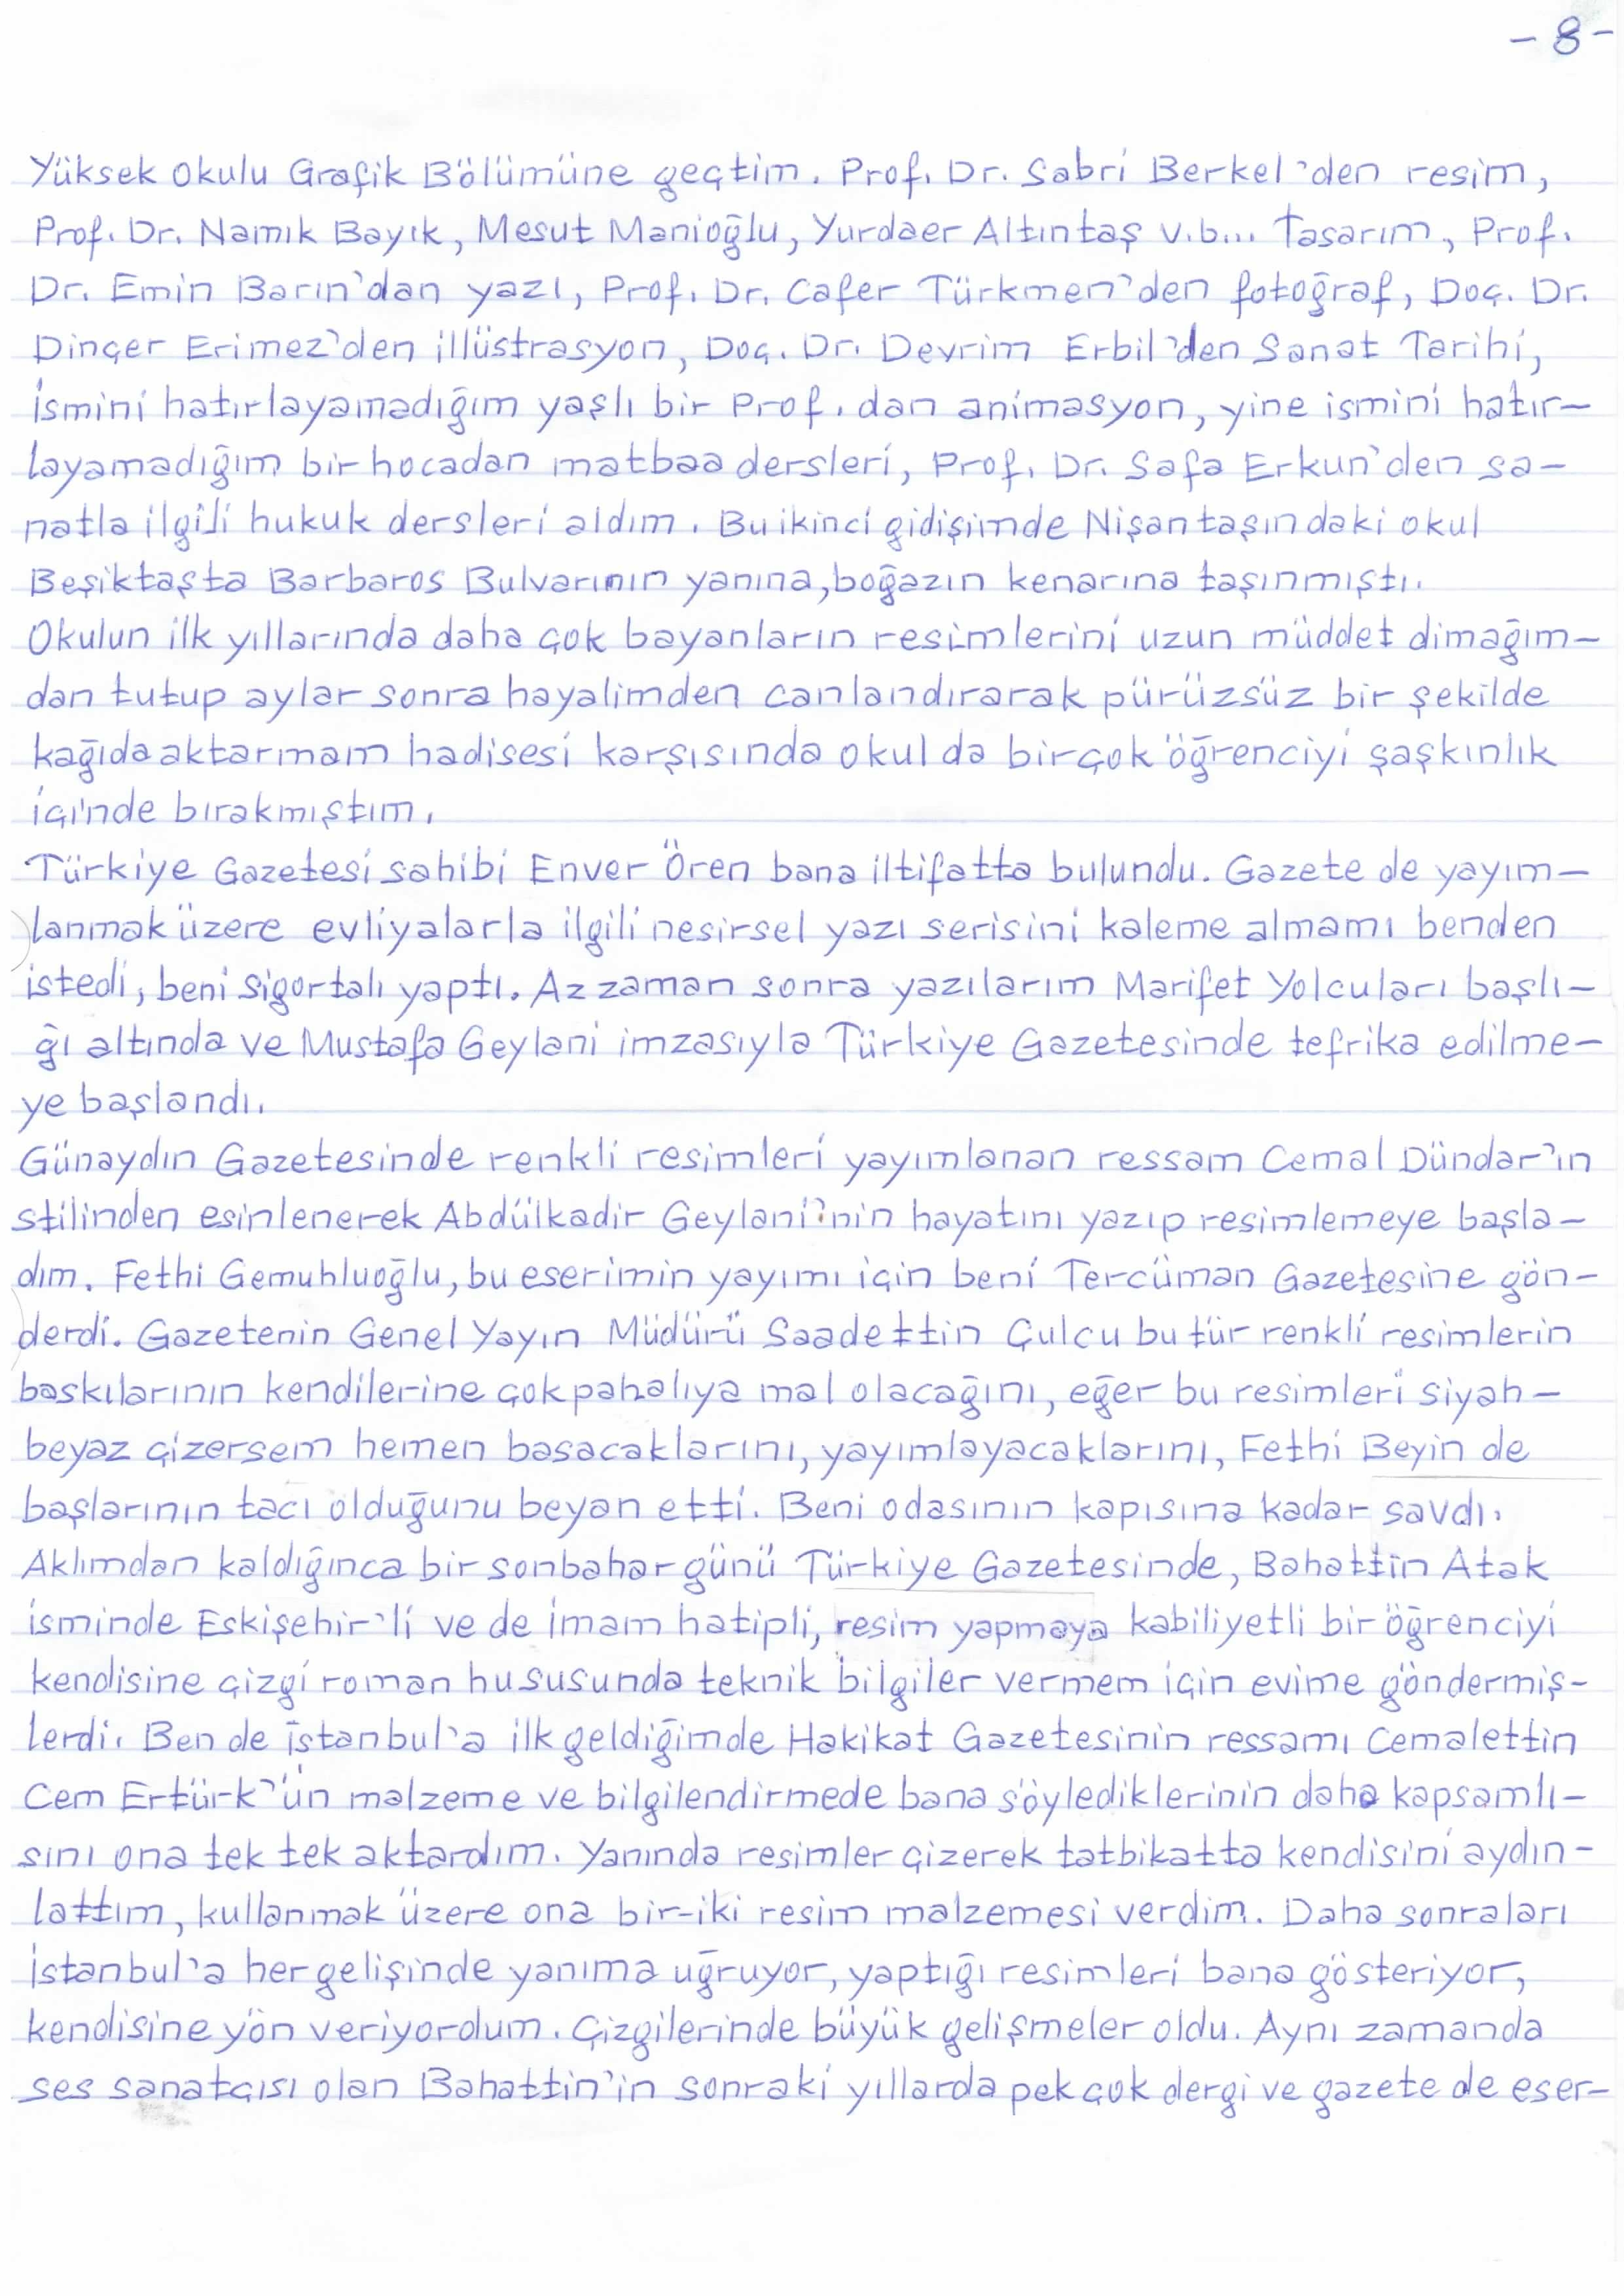 - 8 -
Yüksek Okulu Grafik Bölümüne geçtim. Prof. Dr. Sabri Berkel'den resim,
Prof. Dr. Namık Bayık, Mesut Manioğlu, Yurdaer Altıntaş v.b... Tasarım, Prof.
Dr. Emin Barın'dan yazı, Prof. Dr. Cafer Türkmen'den fotoğraf, Doç. Dr.
Dinçer Erimez'den illüstrasyon, Doç. Dr. Devrim Erbil'den Sanat Tarihi,
ismini hatırlayamadığım yaşlı bir Prof. dan animasyon, yine ismini hatır-
layamadığım bir hocadan matbaa dersleri, Prof. Dr. Safa Erkun'den sa-
natla ilgili hukuk dersleri aldım. Bu ikinci gidişimde Nişantaşındaki okul
Beşiktaşta Barbaros Bulvarının yanına, boğazın kenarına taşınmıştı.
Okulun ilk yıllarında daha çok bayanların resimlerini uzun müddet dimağım-
dan tutup aylar sonra hayalimden canlandırarak pürüzsüz bir şekilde
kağıda aktarmam hadisesi karşısında okul da birçok öğrenciyi şaşkınlık
içinde bırakmıştım.
Türkiye Gazetesi sahibi Enver Ören bana iltifatta bulundu. Gazete de yayım-
lanmak üzere evliyalarla ilgili nesirsel yazı serisini kaleme almamı benden
istedi, beni sigortalı yaptı. Az zaman sonra yazılarım Marifet Yolcuları başlı-
ğı altında ve Mustafa Geylani imzasıyla Türkiye Gazetesinde tefrika edilme-
ye başlandı.
Günaydın Gazetesinde renkli resimleri yayımlanan ressam Cemal Dündar'ın
stilinden esinlenerek Abdülkadir Geylani'nin hayatını yazıp resimlemeye başla-
dım. Fethi Gemuhluoğlu, bu eserimin yayımı için beni Tercüman Gazetesine gön-
derdi. Gazetenin Genel Yayın Müdürü Saadettin Çulcu bu tür renkli resimlerin
baskılarının kendilerine çok pahalıya mal olacağını, eğer bu resimleri siyah-
beyaz çizersem hemen basacaklarını, yayımlayacaklarını, Fethi Beyin de
başlarının tacı olduğunu beyan etti. Beni odasının kapısına kadar savdı.
Aklımdan kaldığınca bir sonbahar günü Türkiye Gazetesinde, Bahattin Atak
isminde Eskişehir'li ve de İmam hatipli, resim yapmaya kabiliyetli bir öğrenciyi
kendisine çizgi roman hususunda teknik bilgiler vermem için evime göndermiş-
lerdi. Ben de İstanbul'a ilk geldiğimde Hakikat Gazetesinin ressamı Cemalettin
Cem Ertürk'ün malzeme ve bilgilendirmede bana söylediklerinin daha kapsamlı-
sını ona tek tek aktardım. Yanında resimler çizerek tatbikatta kendisini aydın-
lattım, kullanmak üzere ona bir-iki resim malzemesi verdim. Daha sonraları
İstanbul'a her gelişinde yanıma uğruyor, yaptığı resimleri bana gösteriyor,
kendisine yön veriyordum. Çizgilerinde büyük gelişmeler oldu. Aynı zamanda
ses sanatçısı olan Bahattin'in sonraki yıllarda pek çok dergi ve gazete de eser-